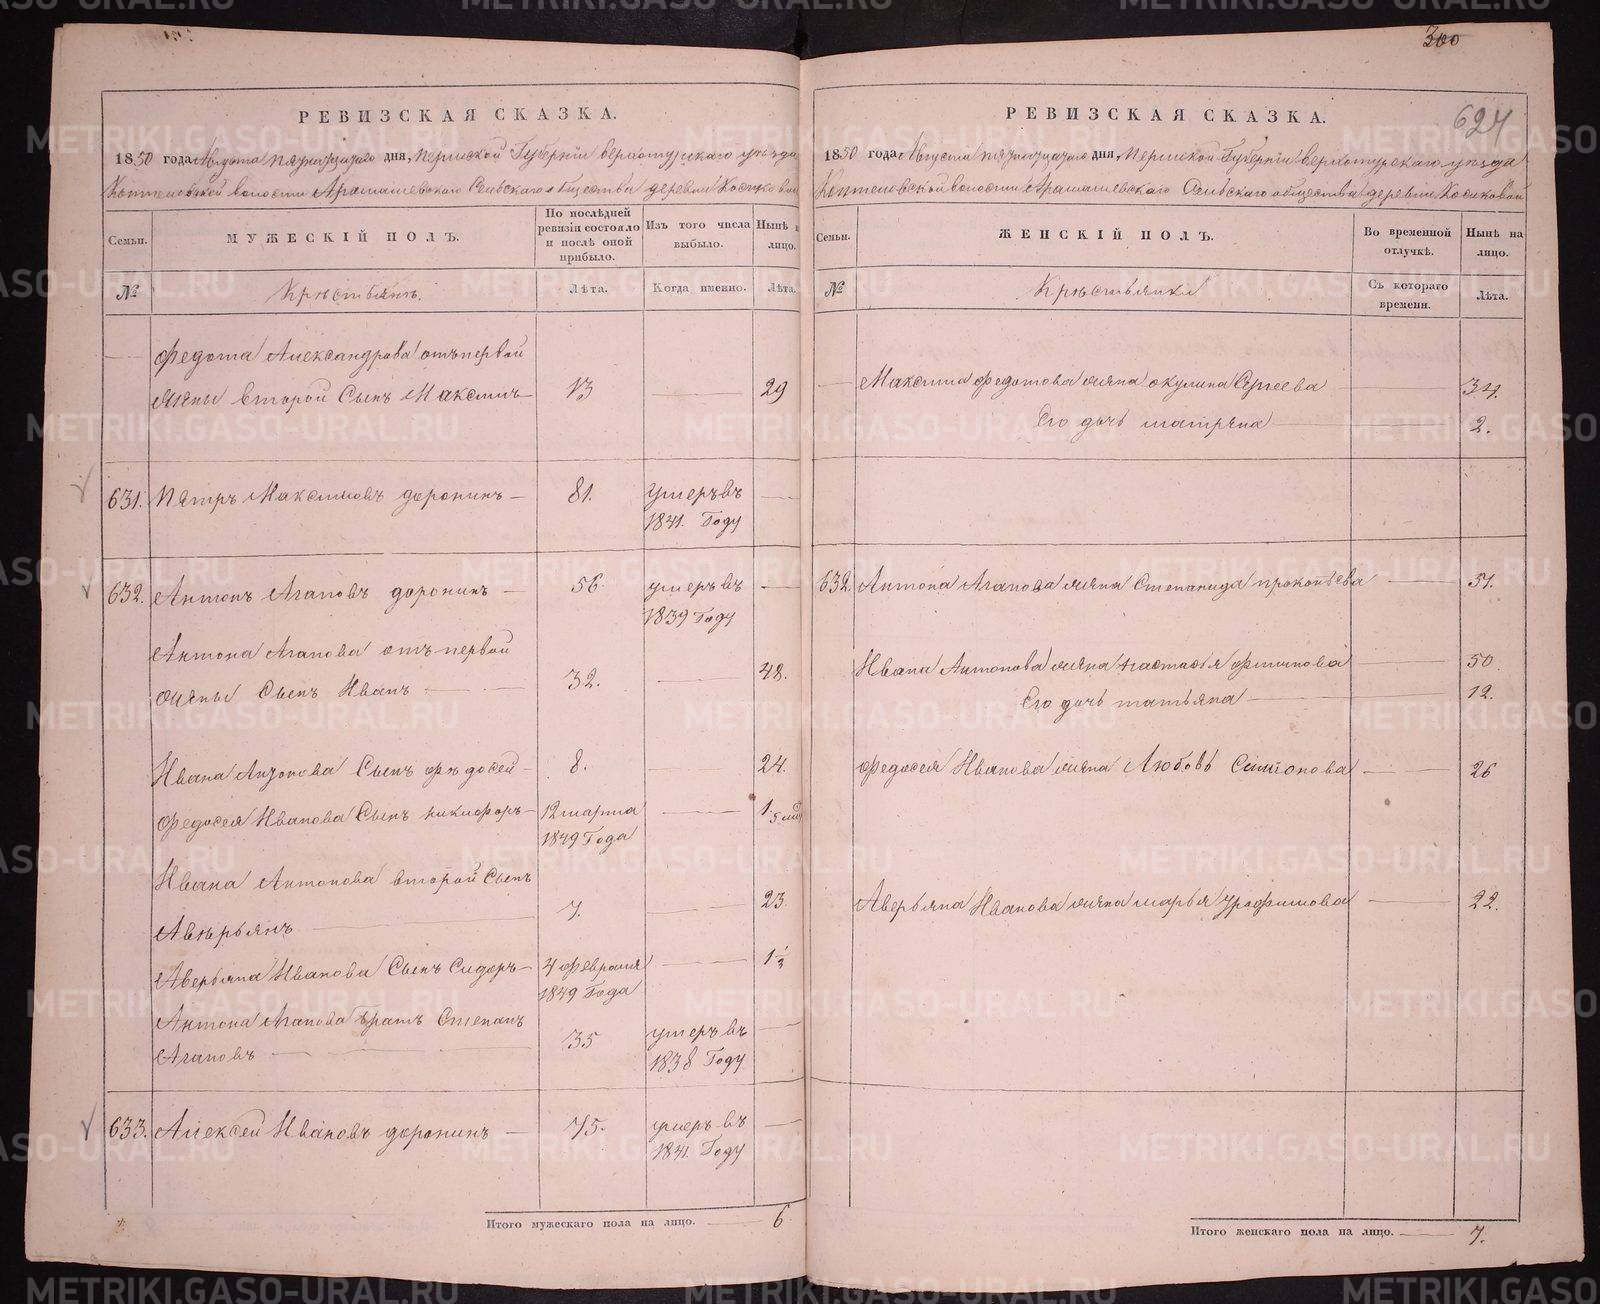 300
624
РЕВИЗСКАЯ СКАЗКА.
1850 года Августа пятнадцатаго дня, Пермской Губерніи верхотурскаго уѣзда
Коптеловской волости Арамашевскаго Сельскаго общества деревни Косиковой
Семьи.
МУЖЕСКІЙ ПОЛЪ.
По послѣдней ревизіи состояло и послѣ оной прибыло.
Изъ того числа выбыло.
Нынѣ на лицо.
№
Крѣстьянъ.
Лѣта.
Когда именно.
Лѣта.
Федота Александрова отъ первой
жены второй Сынъ Максимъ 13 29
631. Пѣтръ Максимовъ доронинъ 81. умеръ въ
1841. Году
632. Антонъ Агаповъ доронинъ 56 умеръ въ
1839 Году
Антона Агапова отъ первой
жены Сынъ Иванъ 32. 48.
Ивана Антонова Сынъ фѣдосей 8. 24.
Федосея Иванова Сынъ никифоръ 12 марта 1. 5 мец
1849 Года
Ивана Антонова второй Сынъ
Авѣрьянъ 7. 23.
Аверьяна Иванова Сынъ Сидоръ 4 февраля 1 1/3
1849 Года
Антона Агапова братъ Степанъ
Агаповъ 35 умеръ въ
1838 Году
633. Алексей Ивановъ доронинъ 75. умеръ въ
1841. Году
Итого мужескаго пола на лицо. 6
РЕВИЗСКАЯ СКАЗКА.
1850 года Августа пятнадцатаго дня, Пермской Губерніи верхотурскаго уѣзда
Коптеловской волости Арамашевскаго Сельскаго общества деревни Косиковой
Семьи.
ЖЕНСКІЙ ПОЛЪ.
Во временной отлучкѣ.
Нынѣ на лицо.
№
Крѣстьянки
Съ котораго времени.
Лѣта.
Максима федотова жена окулина Сергеева 34.
Его дочь матрена 2.
632. Антона Агапова жена Степанида прокопьева 51.
Ивана Антонова жена Настасья филипова 50
Его дочь татьяна 12.
федосея Иванова жена Любовь Симіонова 26
Аверьяна Иванова жена марья трофимова 22.
Итого женскаго пола на лицо. 7.
METRIKI.GASO-URAL.RU